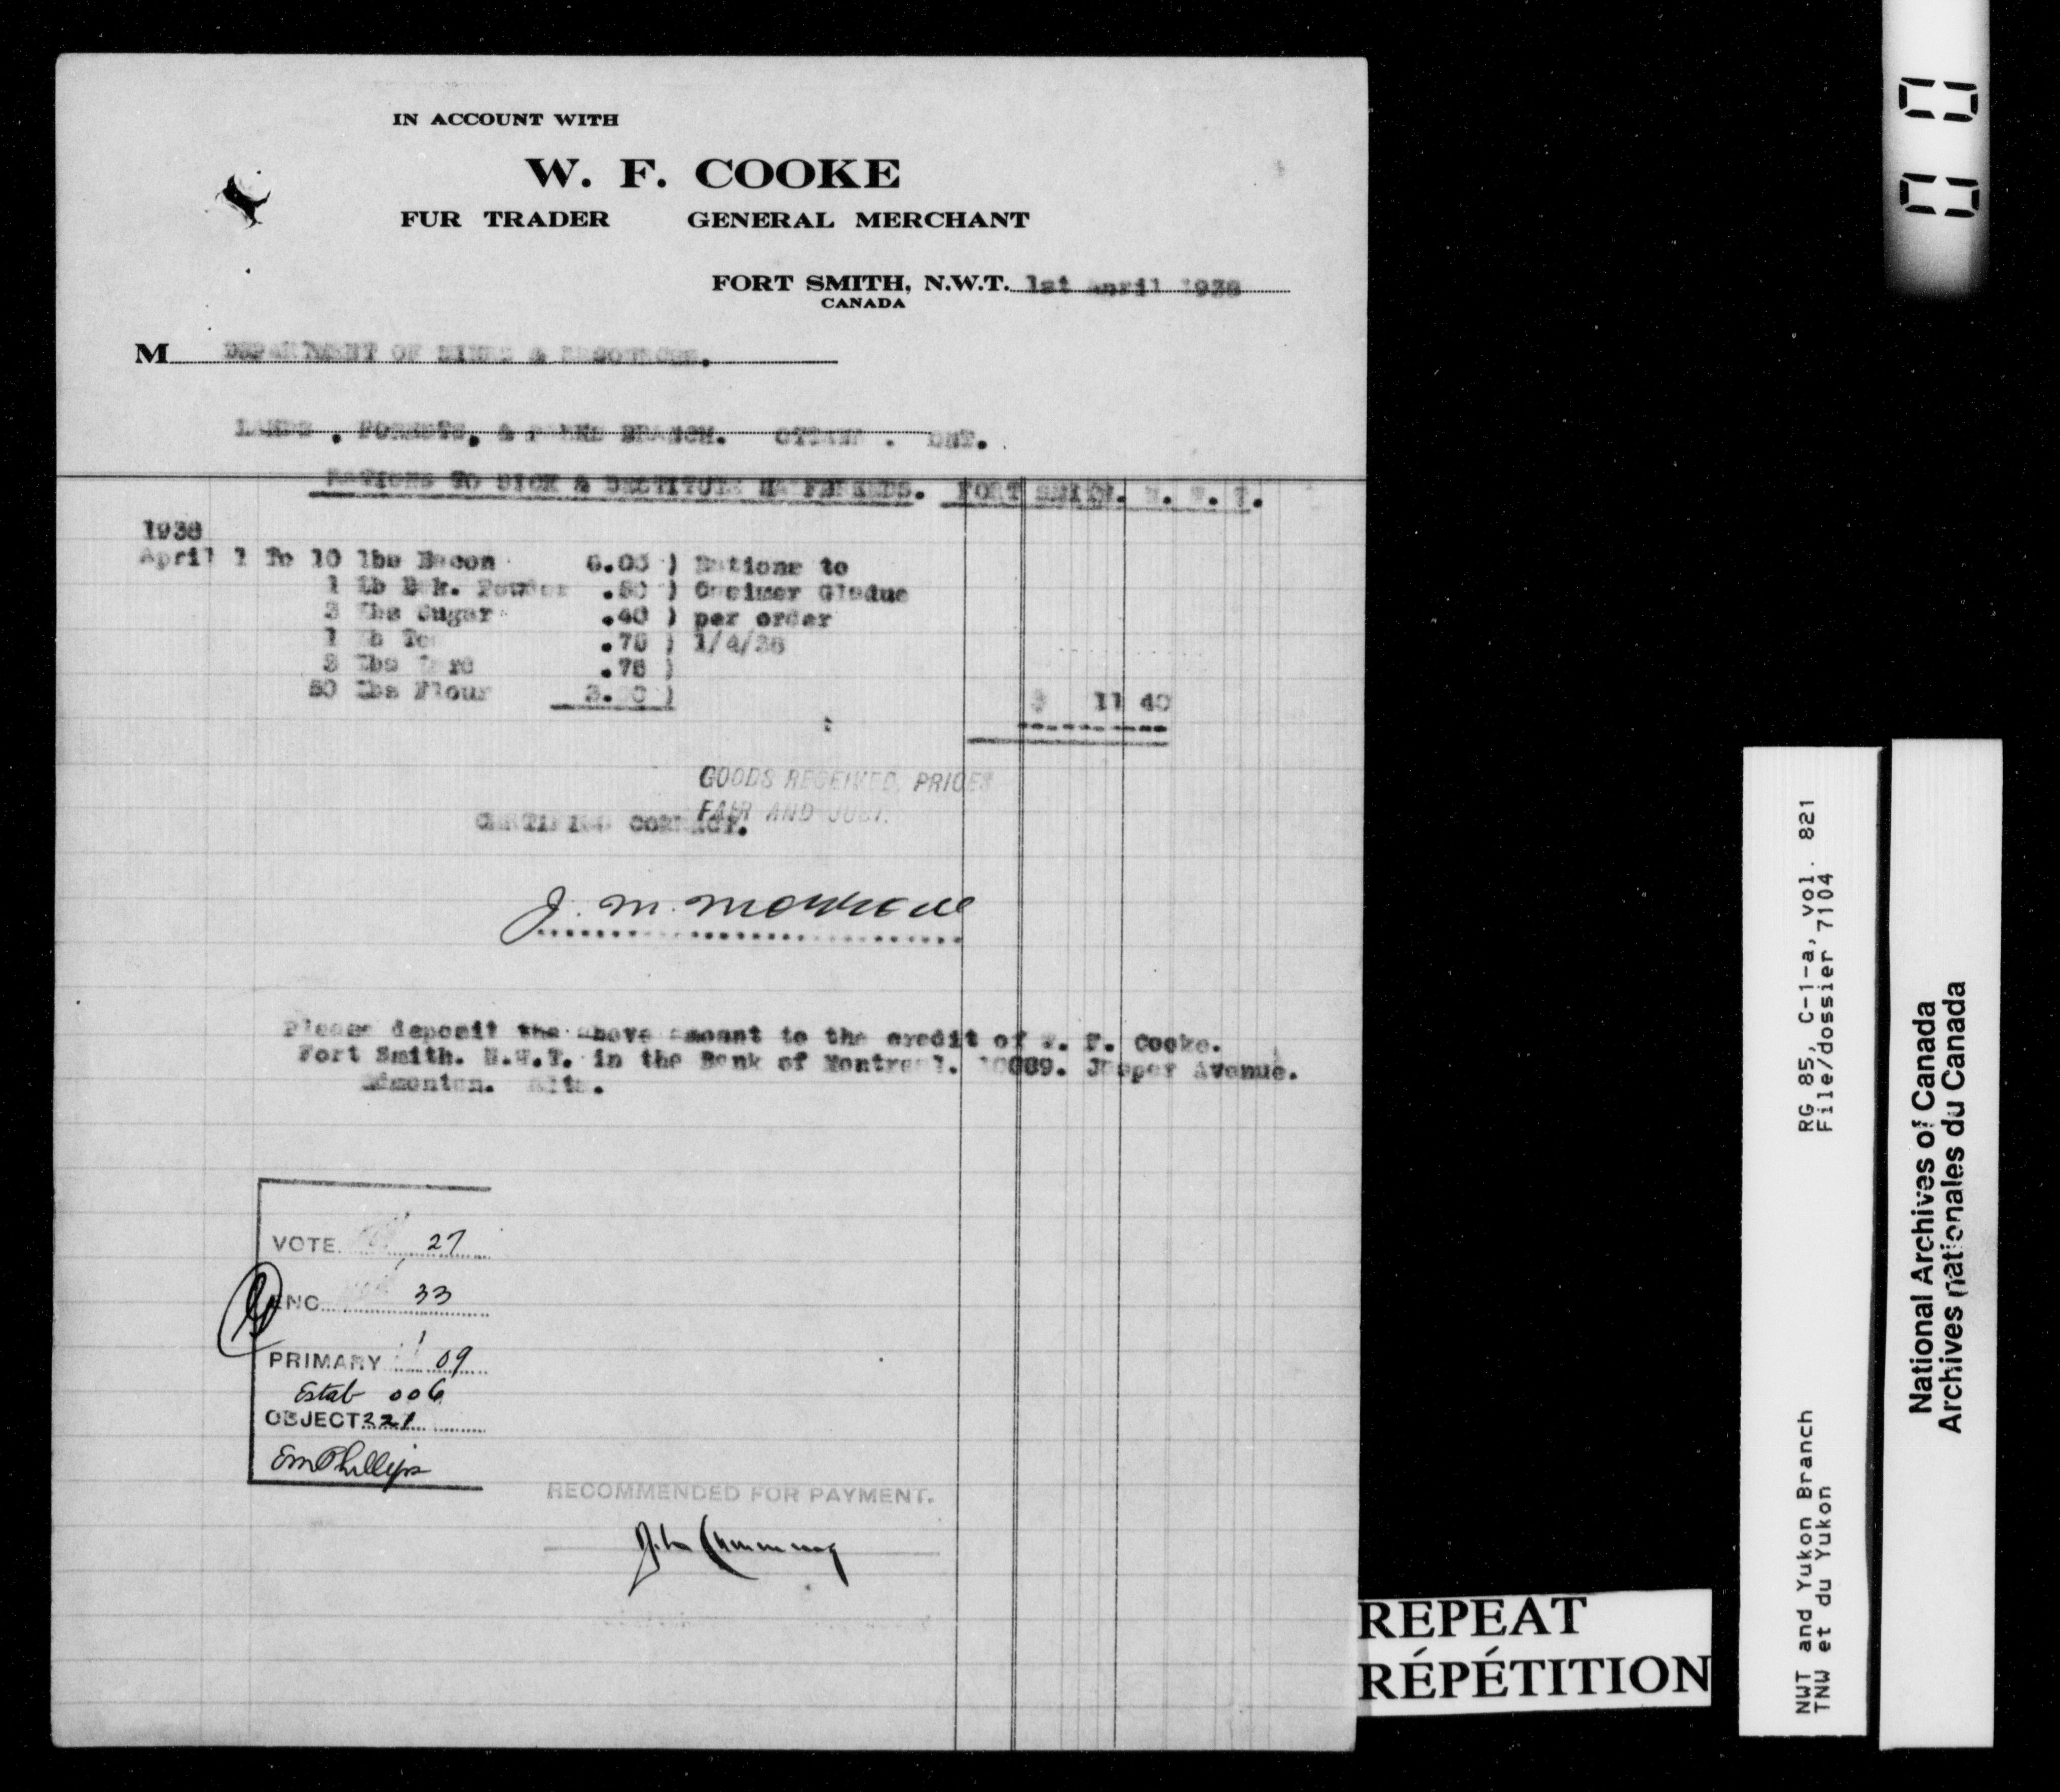 IN ACCOUNT WITH
W. F. COOKE
FUR TRADER GENERAL MERCHANT
FORT SMITH, N.W.T. 1st April 1938
CANADA
M DEPARTMENT OF MINES & RESOURCES.
LANDS, FORESTS, & PARKS BRANCH. OTTAWA. ONT.
RATIONS TO SICK & DESTITUTE HALFBREEDS. FORT SMITH. N. W. T.
1938
April 1 To 10 lbs Bacon 6.00 ) Rations to
1 Lb Bak. Powder .50 ) Casimer Gladue
3 Lbs Sugar .40 ) per order
1 Lb Tea .75 ) 1/4/38
3 Lbs Lard .75 )
50 Lbs Flour 3.00 )
$ 11 40
GOODS RECEIVED, PRICES
FAIR AND JUST.
CERTIFIED CORRECT.
J. M.
Please deposit the above amount to the credit of W. F. Cooke.
Fort Smith. N.W.T. in the Bank of Montreal. 10089. Jasper Avenue.
Edmonton. Alta.
VOTE 27
ENC 33
PRIMARY 09
Estab 006
OBJECT 221
EM Phillips
RECOMMENDED FOR PAYMENT.
Cumming
REPEAT
RÉPÉTITION
RG 85, C-1-a, vol. 821
File/dossier 7104
NWT and Yukon Branch
TNW et du Yukon
National Archives of Canada
Archives nationales du Canada